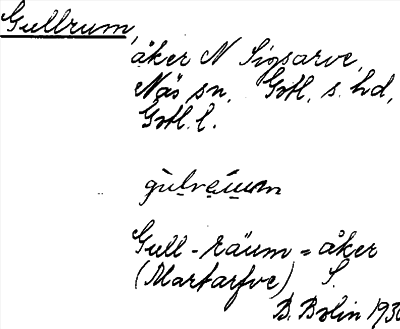 Gullrum,
åker N Sigsarve,
Näs sn, Gotl. s. hd,
Gotl. l.
Gull-räum = åker
(Martarfve) S.
B. Bolin